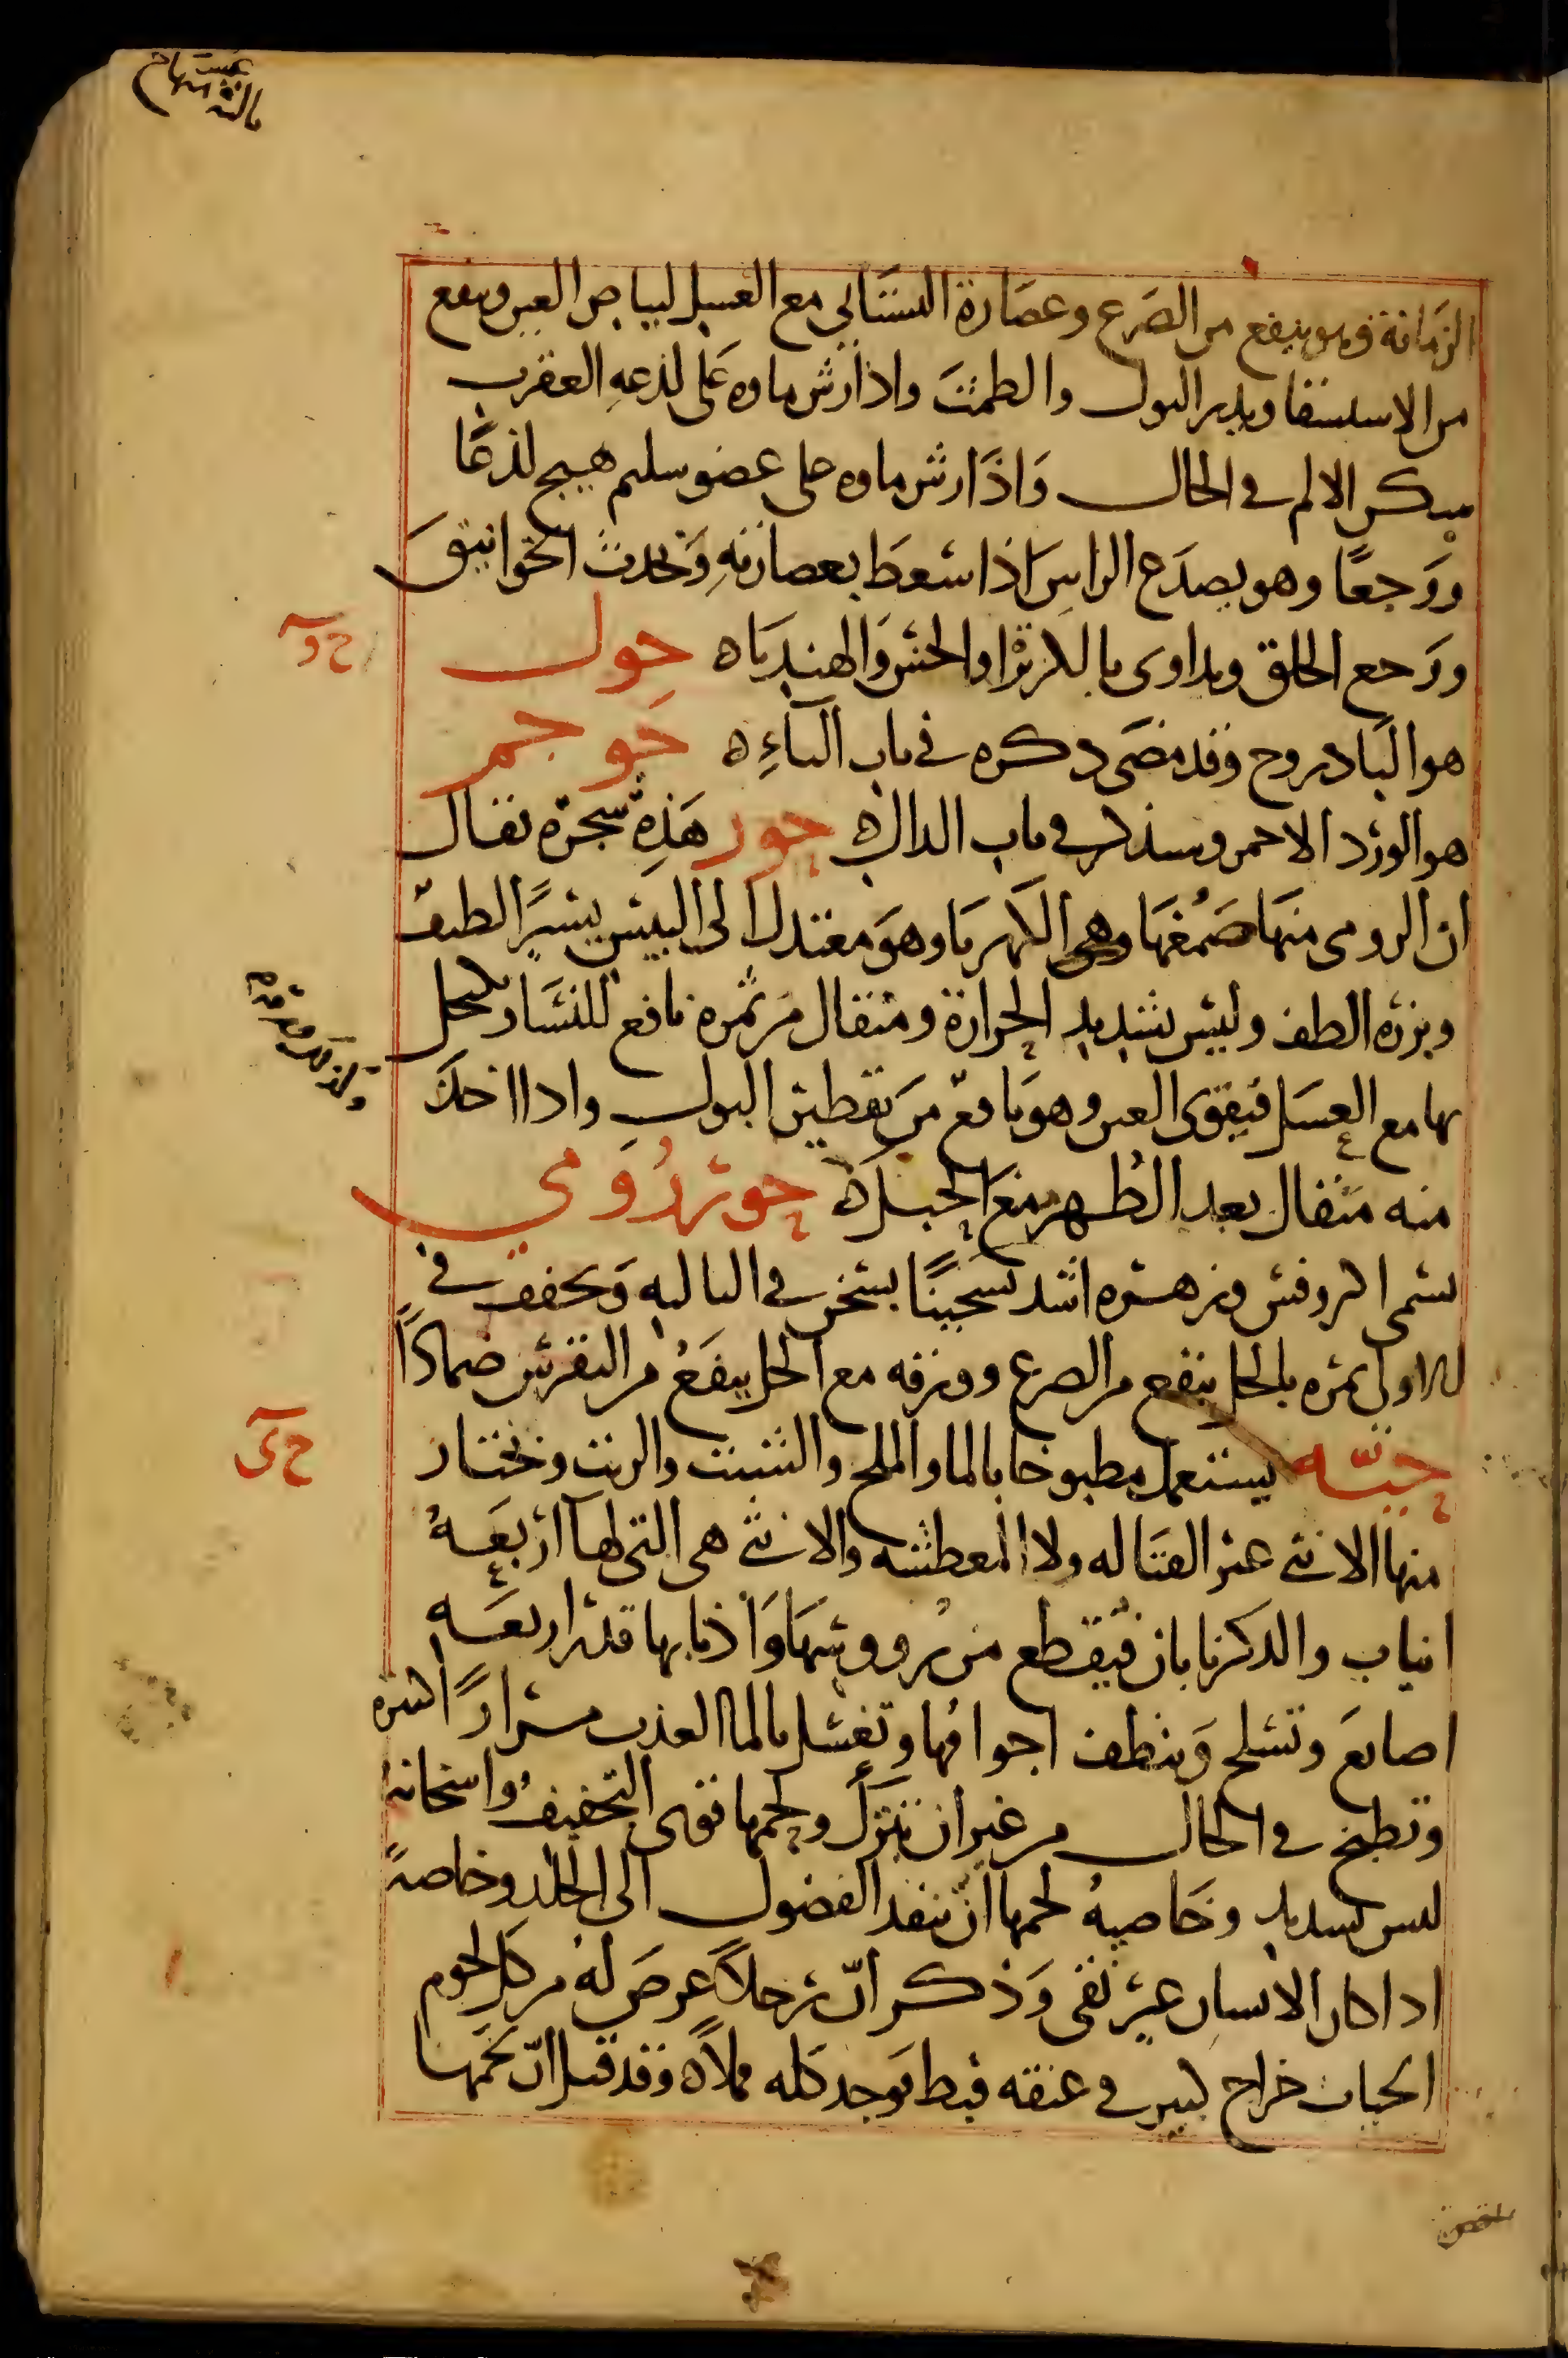 الزمانة فهو ينفع من الصرع وعصارة البستاني مع العسل لبياض العين وينفع
من الاستسقا ويدر البول والطمث واذا رش ماوه على لذعه العقرب
سكن الالم في الحال وَاذَا رش ماوه على عضو سليم هيج لذعًا
ووَجعًا وهو يصدَع الراس اذا سُعط بعصارتهِ وَتحدث الخوانيق
ووجع الحلق ويداوى بالكزبرا والخس والهندباه حوك
هو البادروج وقد مضى دكره في باب الباءِ ه حَوجمر
هو الورد الاحمر وسنذكره في باب الدال ه حور هَذِه شجرة تقال
ان الرومى منها صَمْغهَا وهى الكهربا وهوَ معتدل الى اليبس يسيرًا لطيف
وبزره الطف وليس بشديد الحرارة ومثقال من ثمره نافع للنسا ويكتحل
بها مع العسل فيقوى العين وهو نافع من تقطير البول واذا اخذ
منه مثقال بعد الطهر منع الحبل ه حور رُومي
يسمى وزهره اشد تسخينًا يسخن في الثالثه وَيجفف في
الاولى ثمره بالخل ينفع من الصرع وورقه مع الخل ينفَعُ من النقرس ضمادًا
حيّه يستعمل مطبوخا بالما والملح والشبت والزيت وتختار
منها الانثى غير القتاله ولا المعطشه والانثى هى التى لها اربعَهُ
انياب والذكر نابان فيقطع من رووسهَا وَاذنابها قدر اربعَه
اصابعَ وتسلخ وَينظف اجوافها وتغسل بالما العذب مرارًا كثيره
وتطبخ في الحال من غير ان تنزل ولحمها قوى التجفيف واسخانه
ليس بشديد وخَاصيهُ لحمها انّ ينفذ الفضول الى الجلد وخاصهً
اذا كان الانسان غير نقى وَذكر انّ رجلاً عرضَ لهُ من كل لحوم
الحيات خراج كبير في عنقه فبط فوجد كله قملاً ه وقد قيل انّ لحمها
ح وآ
ح ى